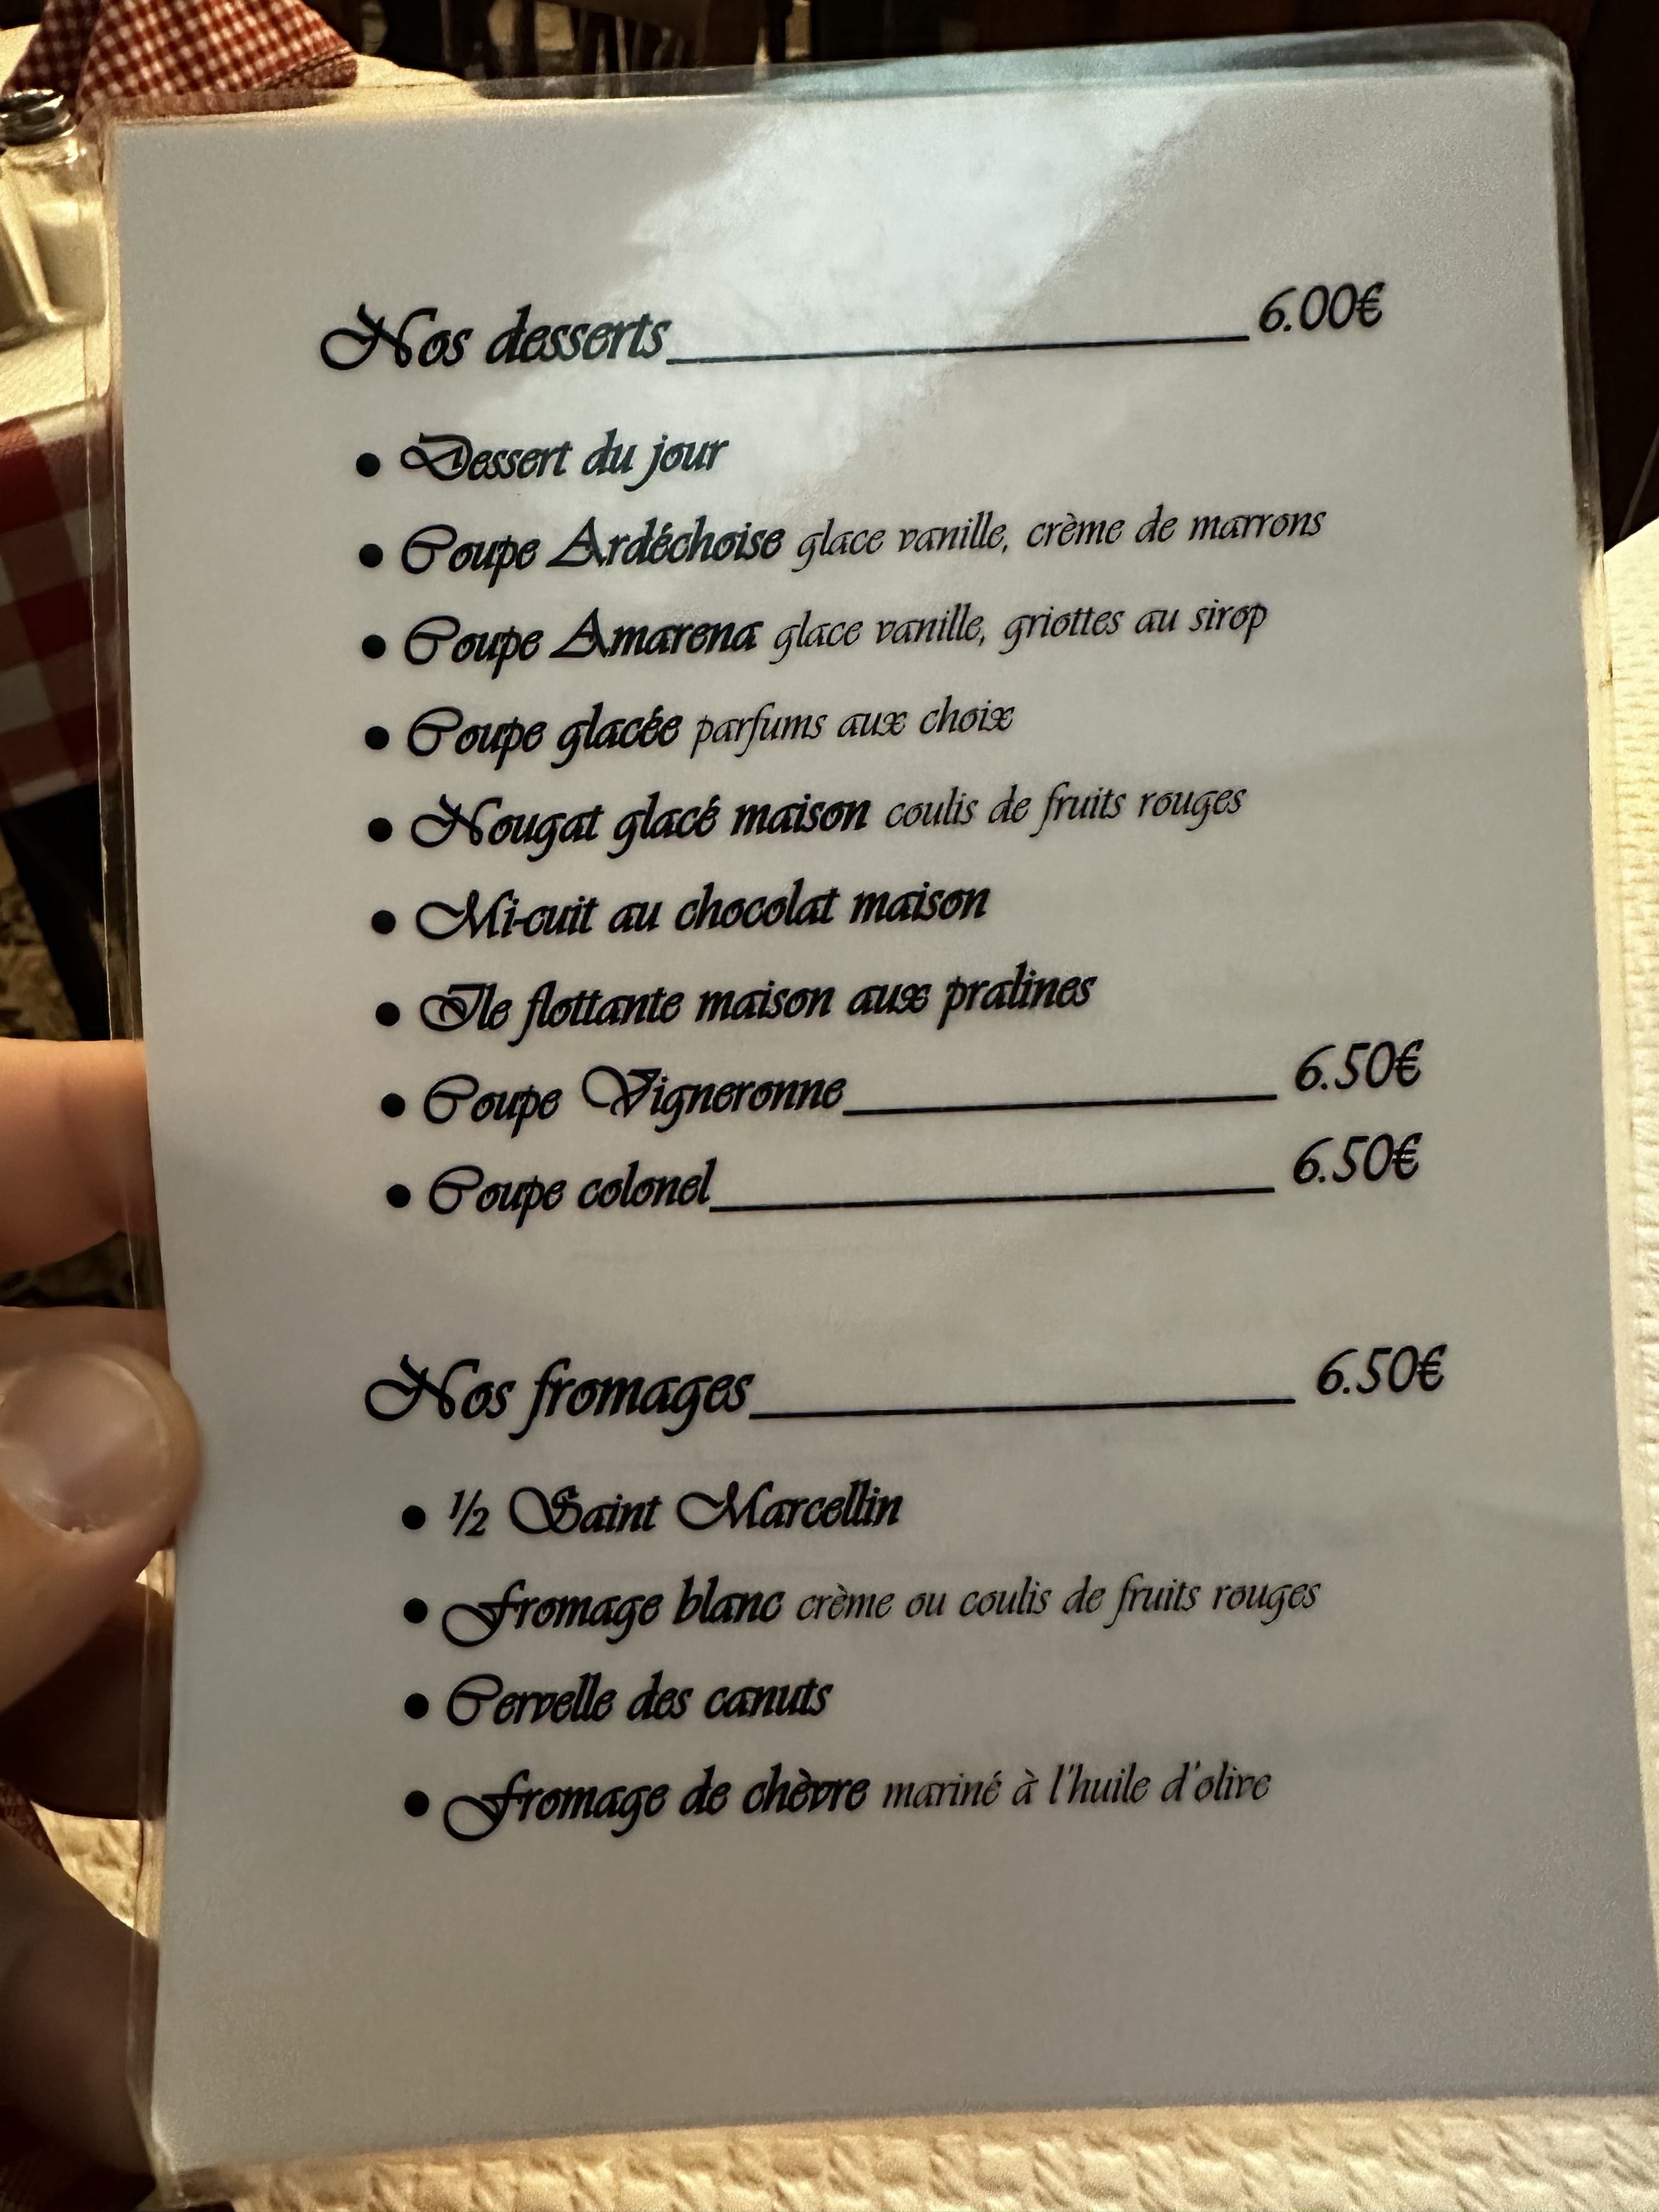 Nos desserts 6.00€
• Dessert du jour
• Coupe Ardéchoise glace vanille, crème de marrons
• Coupe Amarena glace vanille, griottes au sirop
• Coupe glacée parfums aux choix
• Nougat glacé maison coulis de fruits rouges
• Mi-cuit au chocolat maison
• Ile flottante maison aux pralines
• Coupe Vigneronne 6.50€
• Coupe colonel 6.50€
Nos fromages 6.50€
• ½ Saint Marcellin
• Fromage blanc crème ou coulis de fruits rouges
• Cervelle des canuts
• Fromage de chèvre mariné à l'huile d'olive